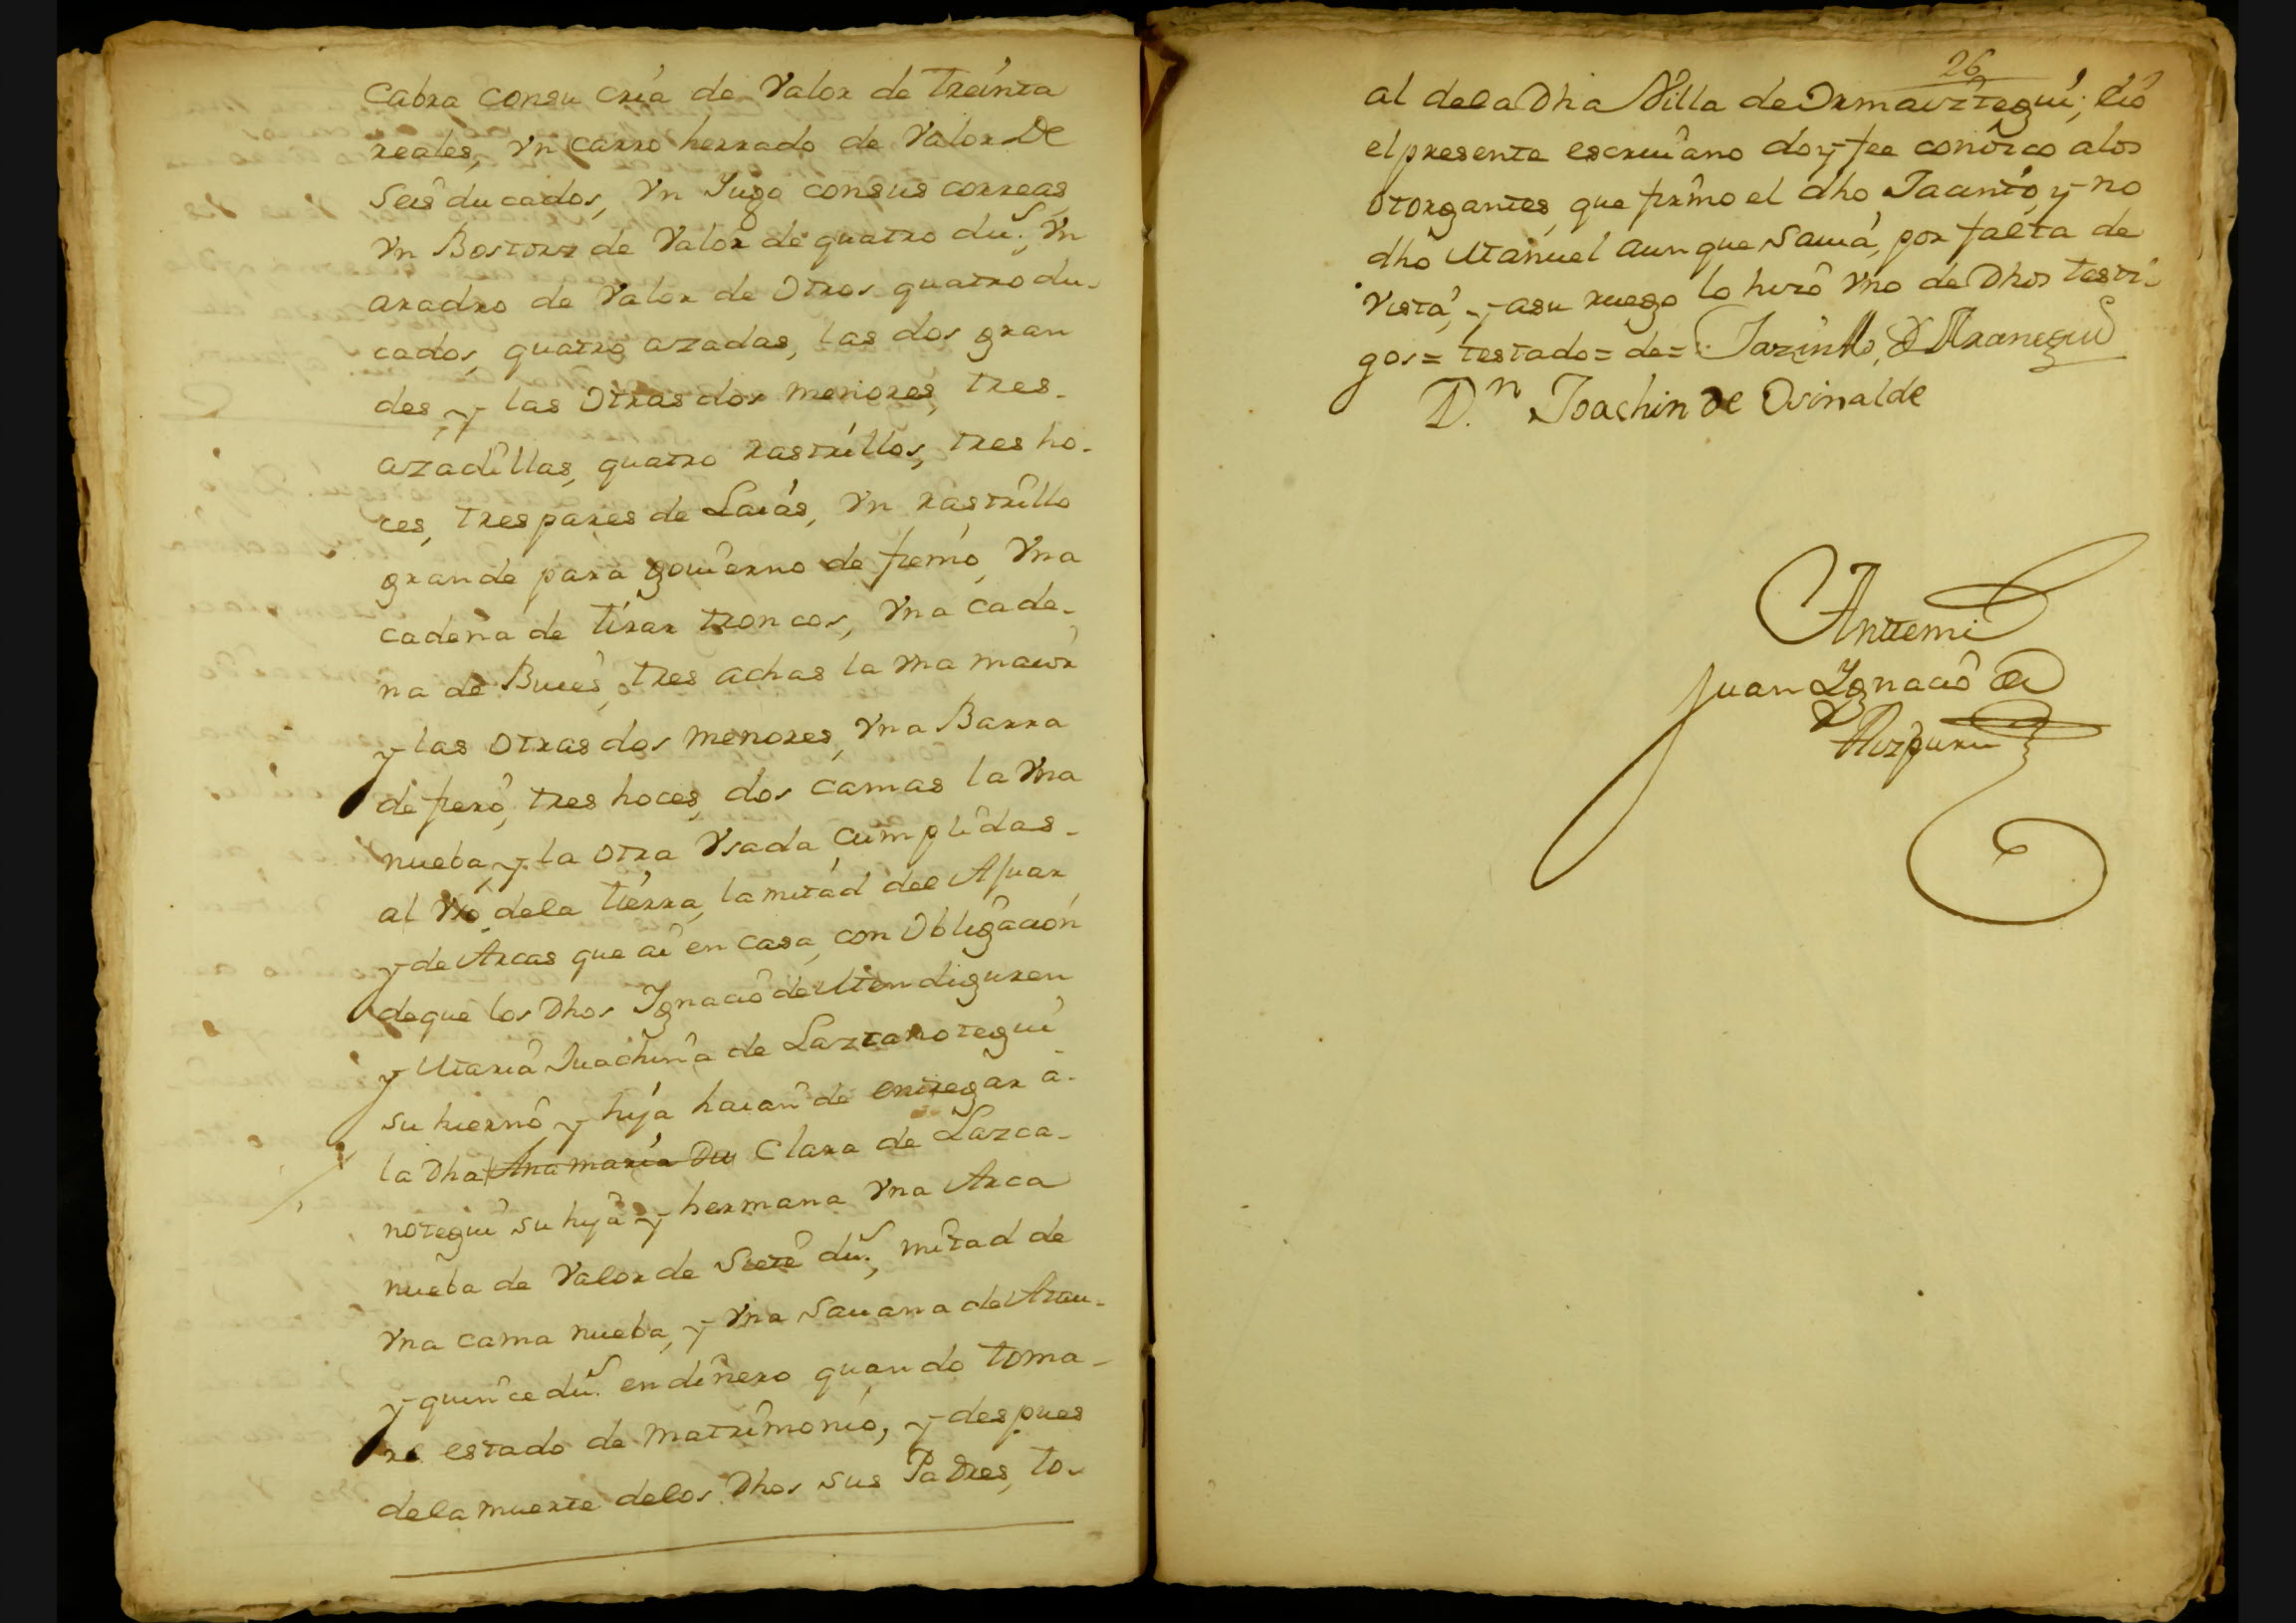 Cabra consu cria de Valor de treinta
reales, Vn carro herrado de Valor De
Seis ducados, Vn Iugo consus correas,
Vn Bostorz de Valor de quatro du.s, Vn
aradro de Valor de Otros quatro du-
cados, quatro azadas, las dos gran
des, y las Otras dos menores, tres-
azadillas, quatro rastrillos, tres ho-
ces, tres pares de Laias, Vn rastrillo
grande para gouierno de fiemo, Vna
cadena de tirar troncos, Vna cade-
na de Bueies, tres achas la Vna maior
y las Otras dos menores, Vna Barra
de fierro, tres hoces, dos camas la Vna
nueba, y la Otra Vsada cumplidas-
al Vso dela tierra, la mitad del Ajuar
y de Arcas que ai en casa, con Obligacion
deque los Dhos Ignacio de Mendiguren
y Maria Juachina de Lazcanotegui
su hierno y hija haian de entregar a-
la Dha Ana maria De Clara de Lazca-
notegui su hija y hermana Vna Arca
nueba de Valor de Siete du.s, mitad de
Vna cama nueba, y Vna Sauana de Arau-
y quince du.s en dinero quando toma-
re estado de matrimonio, y despues
dela muerte delos Dhos sus Padres, to-
26
al dela Dha Villa de Ormaiztegui; eio
el presente escriuano doy fee conozco alos
Otorgantes, que firmo el dho Jacinto, y no
dho Manuel aunque Sauia, por falta de
Vista, y asu ruego lo hizo Vno de Dhos testi-
gos = testado = de = Jazinto de Aranegui
D.n Joachin de Osinalde
Anttemi
Juan Ygnacio de
Aizpuru